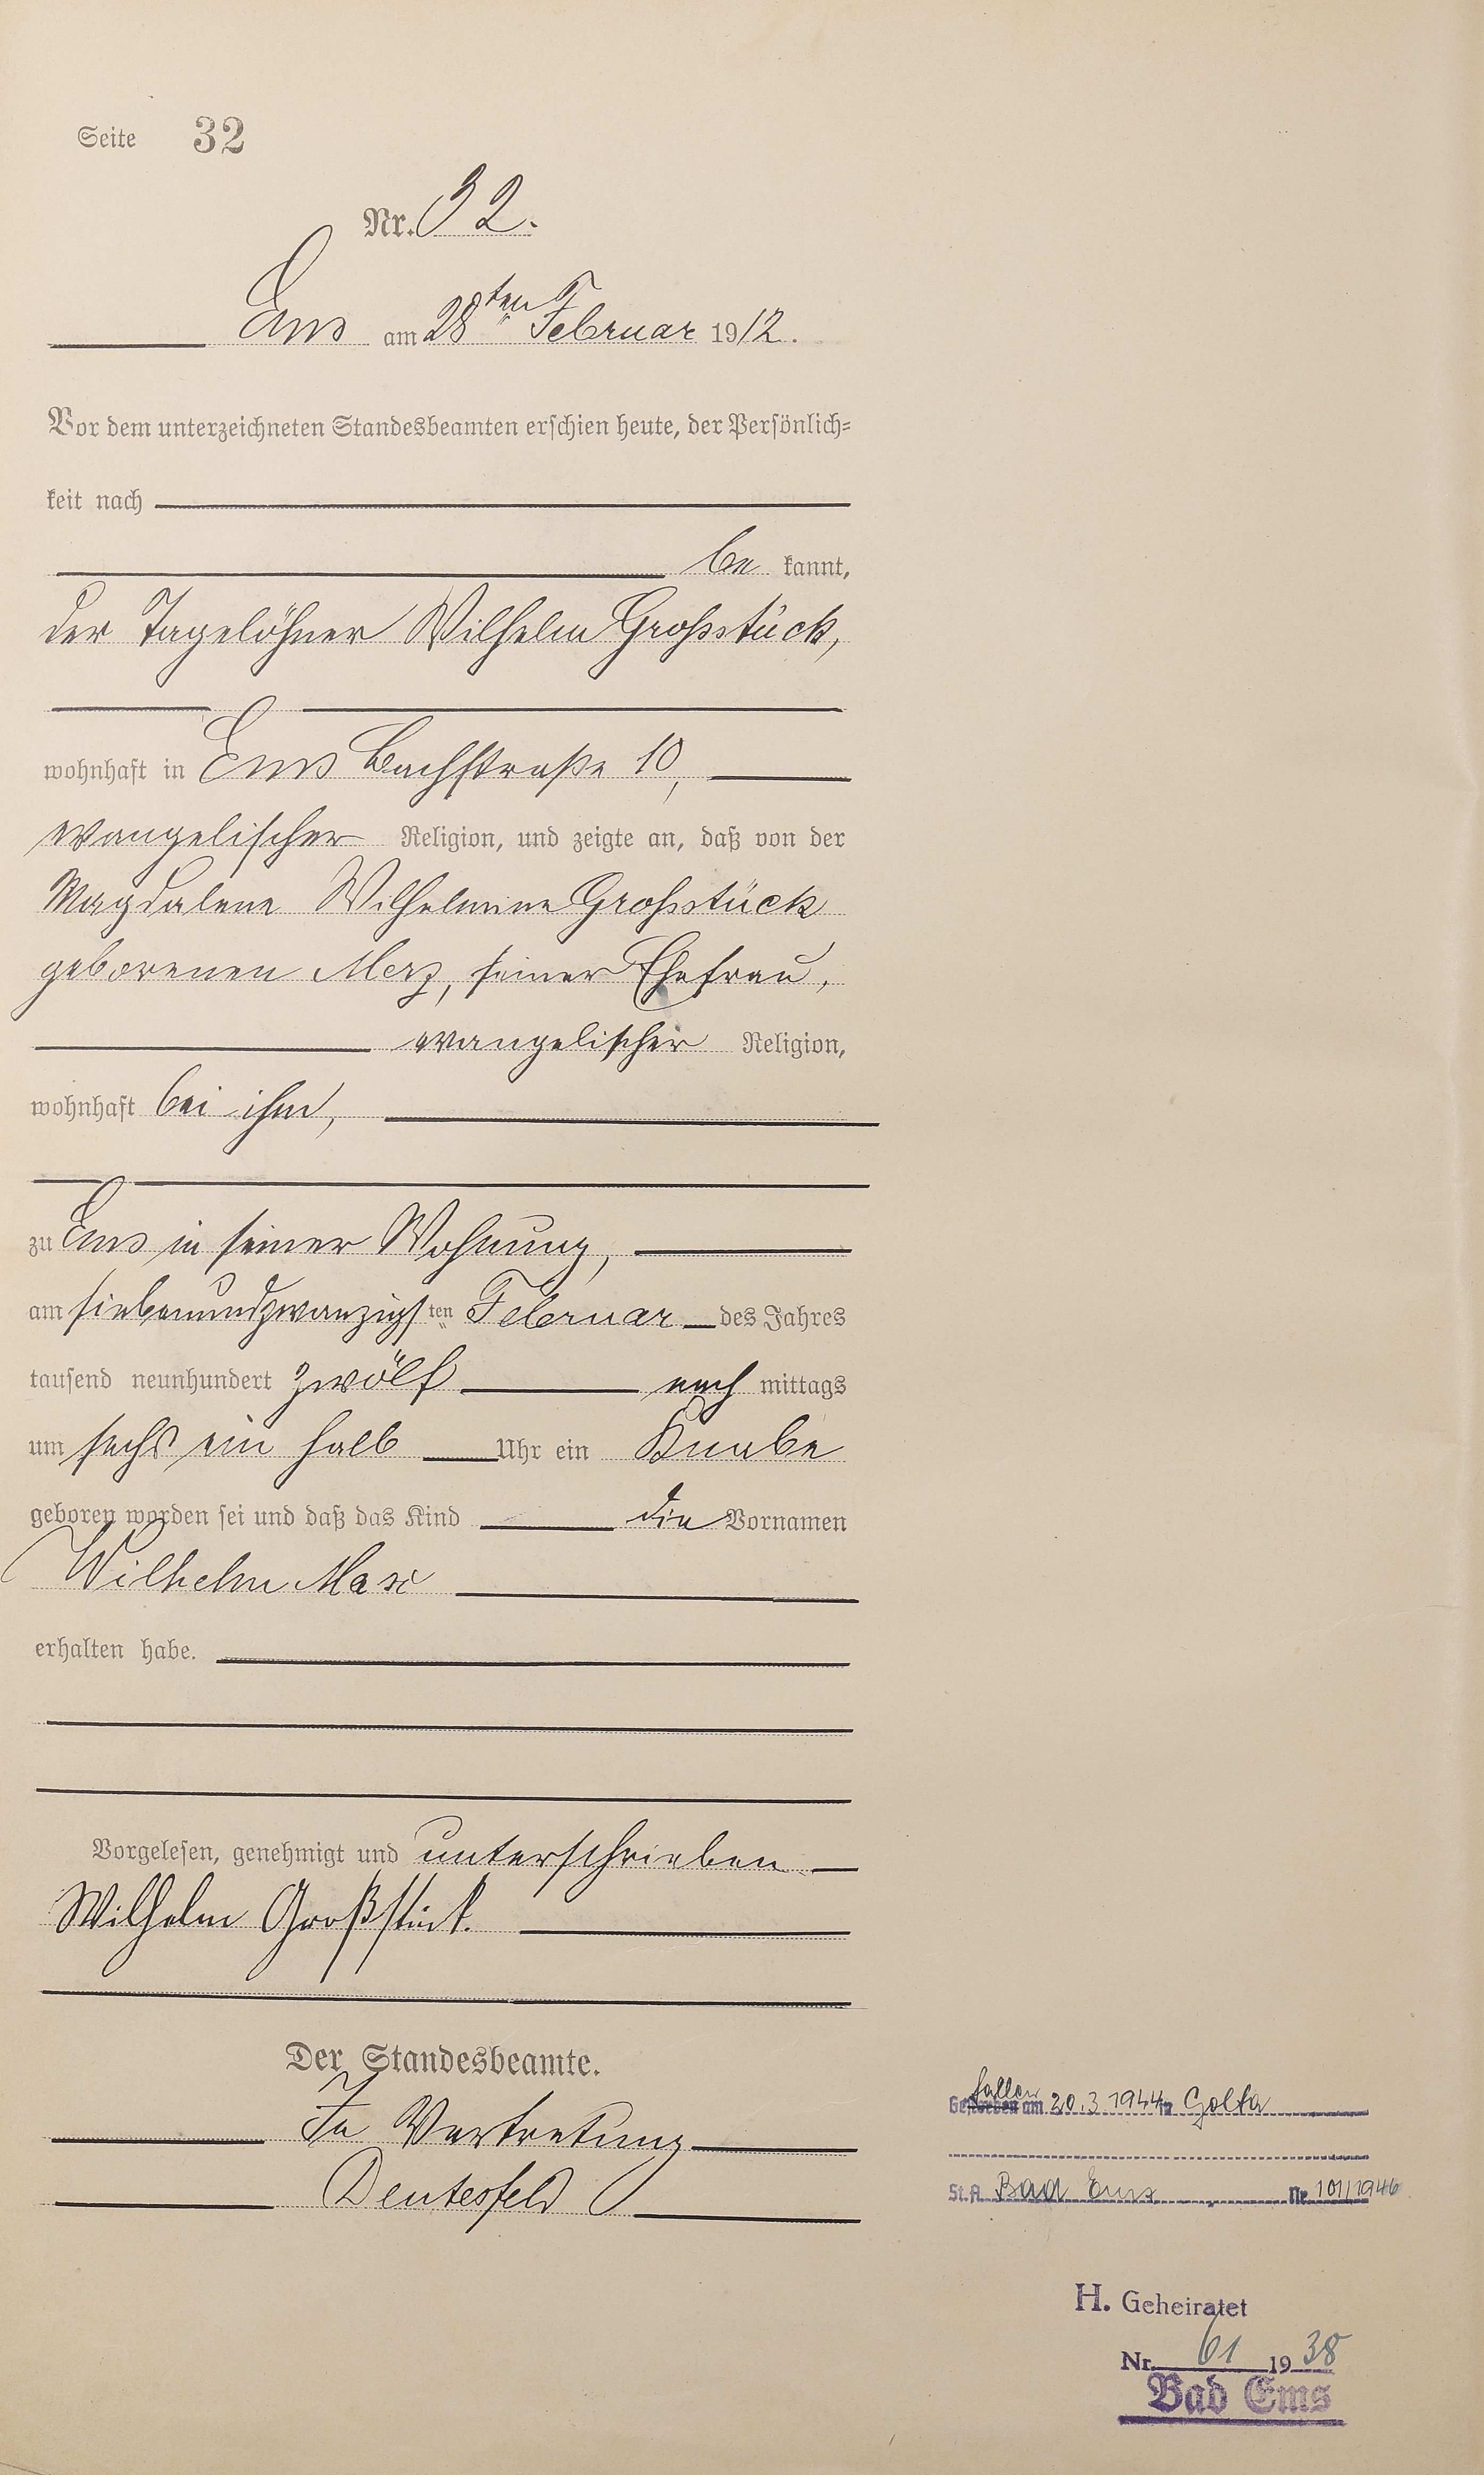 Seite 32
Nr. 32.
Ems am 28ten Februar 1912.
Vor dem unterzeichneten Standesbeamten erschien heute, der Persönlich-
keit nach
be kannt,
der Tagelöhner Wilhelm Grossstück,
wohnhaft in Ems Bachstraße 10,
evangelischer Religion, und zeigte an, daß von der
Magdalene Wilhelmine Grossstück
geborenen Merz, seiner Ehefrau,
evangelischer Religion,
wohnhaft bei ihm,
zu Ems in seiner Wohnung,
am siebenundzwanzigsten Februar des Jahres
tausend neunhundert zwölf nach mittags
um sechs ein halb Uhr ein Knabe
geboren worden sei und daß das Kind die Vornamen
Wilhelm Max
erhalten habe.
Vorgelesen, genehmigt und unterschrieben
Wilhelm Großstück.
Der Standesbeamte.
In Vertretung
Deutesfeld
Gefallen am 20.3.1944 in Golta
St.A. Bad Ems Nr. 101/1946
H. Geheiratet
Nr. 61 1938
Bad Ems